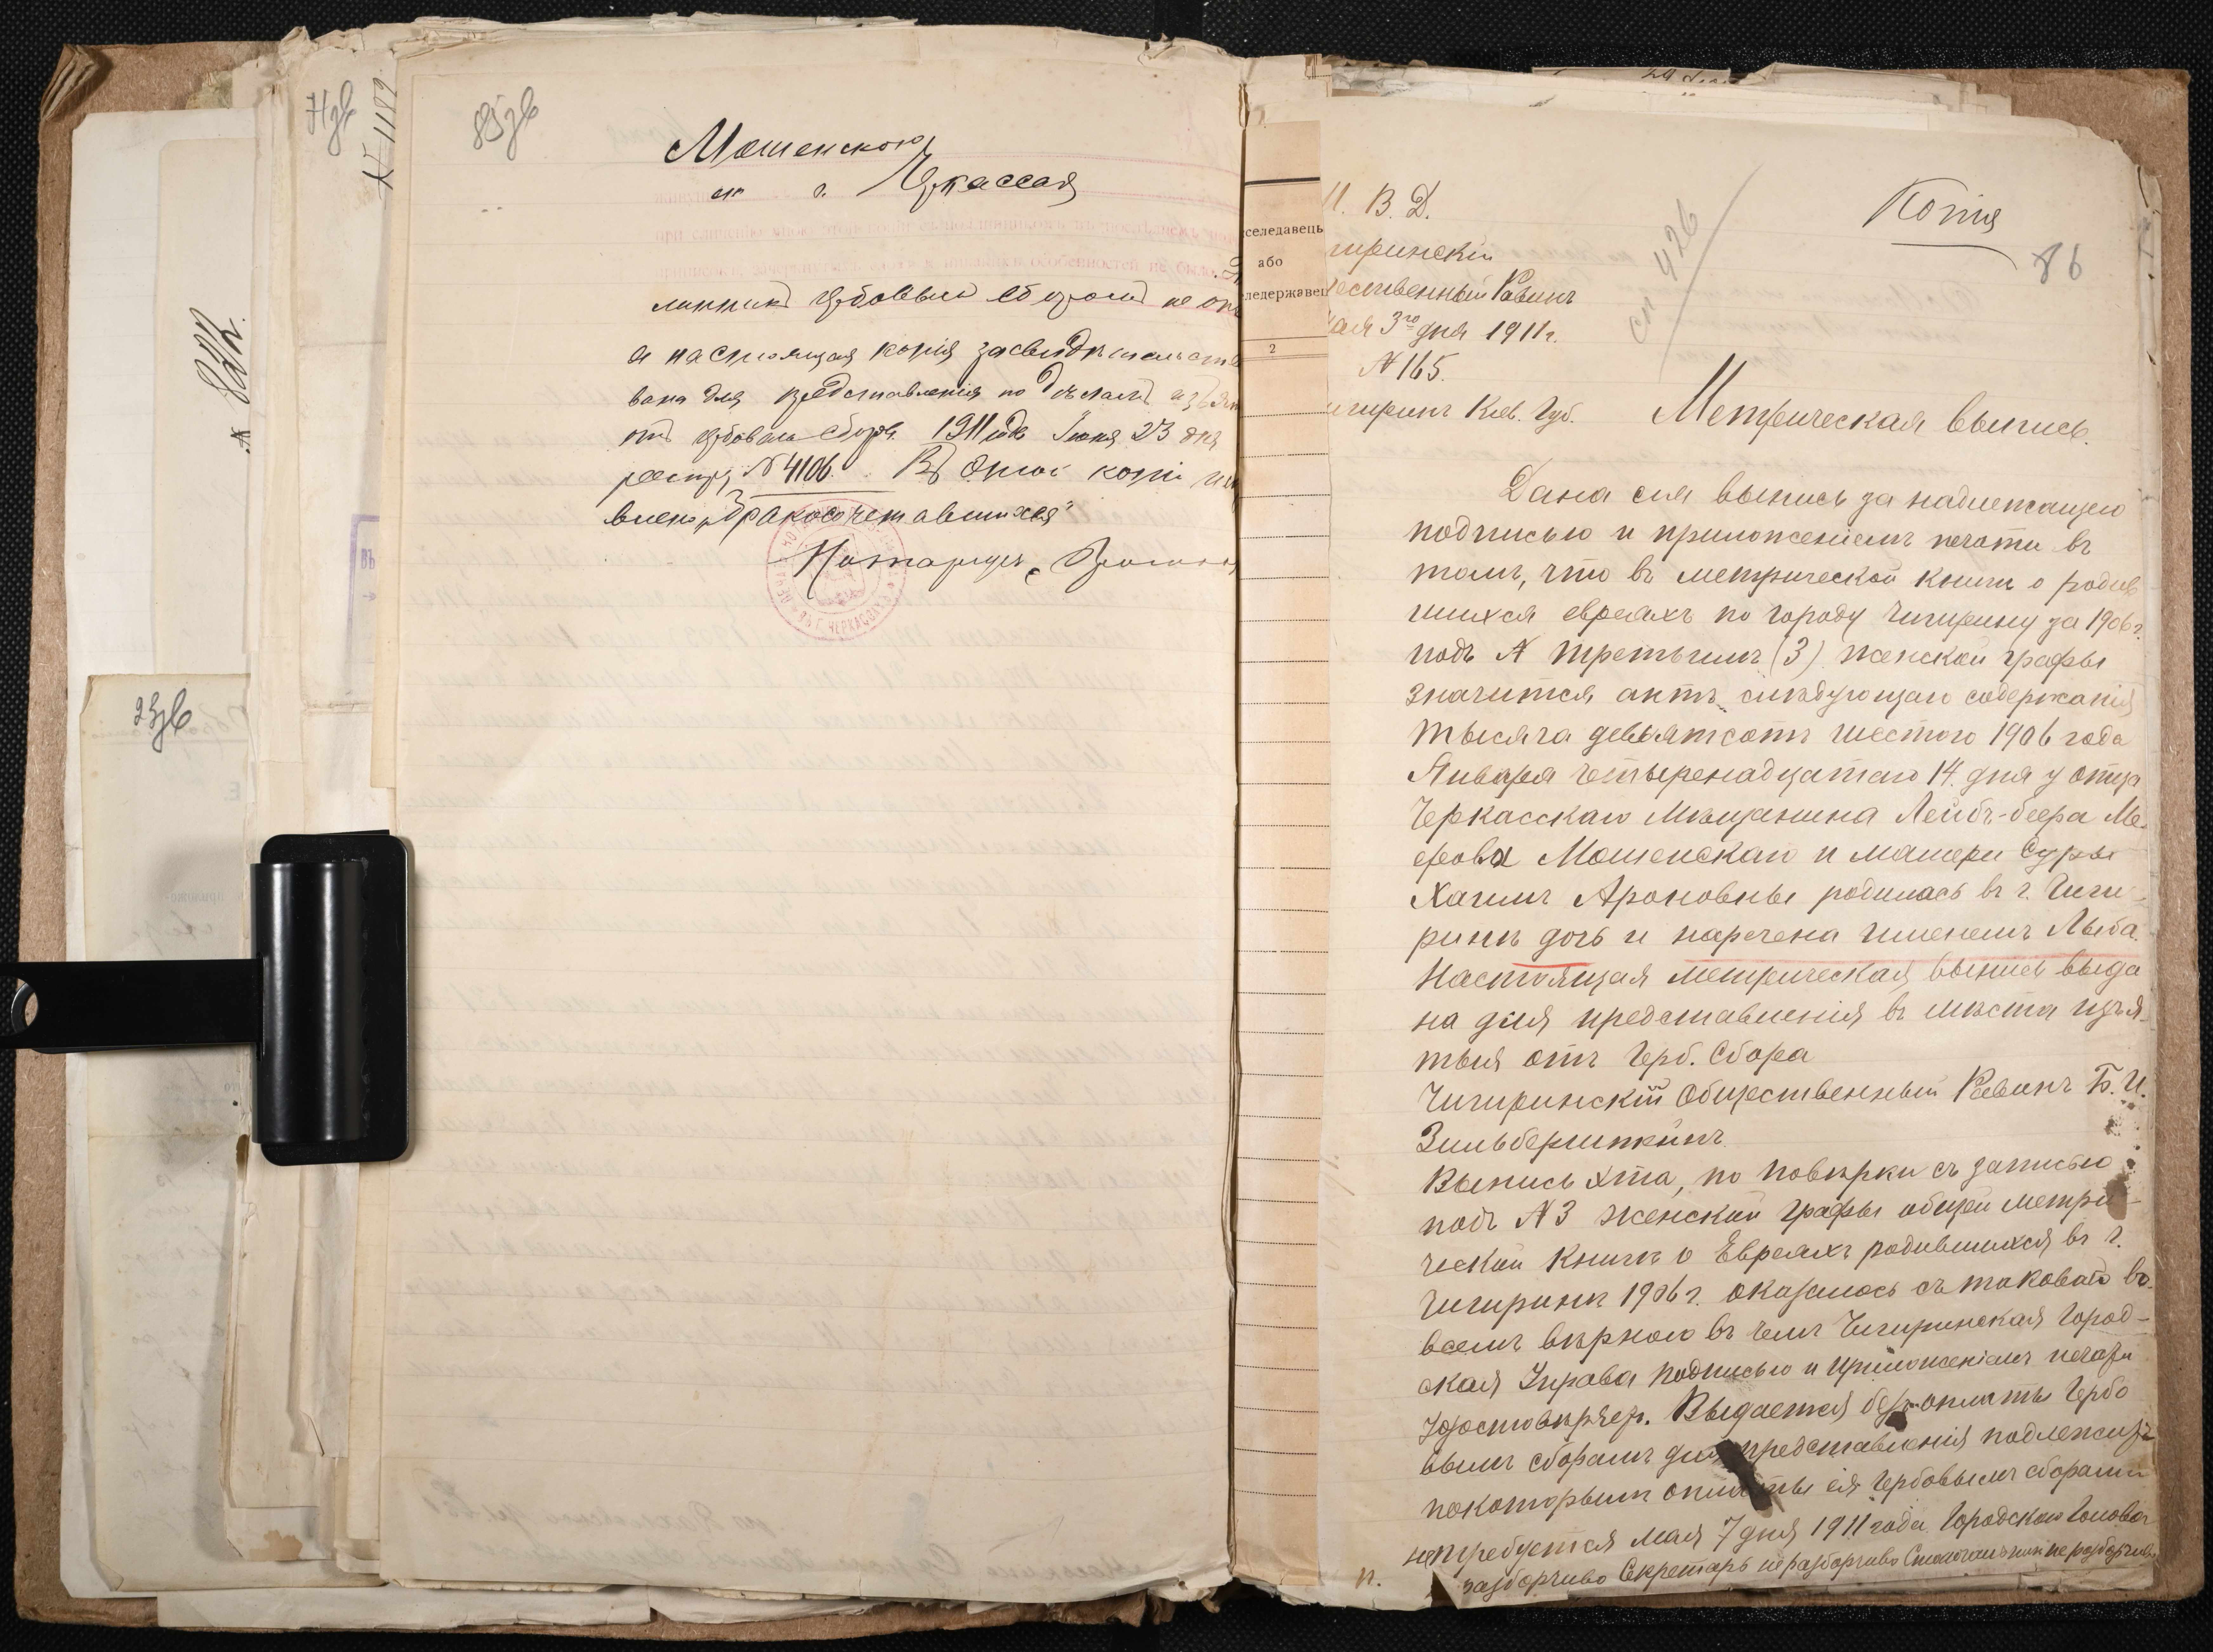 Нзв
N 1189
№ 882.
93зв
85зв
Мошенскою
въ г. Черкассах
при сличеніи мною этой копіи съ подлинникомъ
приписокъ, зачеркнутыхъ словъ и никакихъ особенностей не было.
линникъ гербовымъ сборомъ не оп
а настоящая копія засвидѣтельство
вана для представленія по дѣламъ изъят
отъ гербоваго сбора. 1911 года Іюня 23 дня
реестру N 4106. Въ этой копіи
влено „бракосочетавшихся"
Нотаріусъ
въ г. Черкассахъ
въ
селедавець
або
ледержавец
2
Копія
86
ст 426
М. В. Д.
гиринскій
ественный Равинъ
Мая 3го дня 1911 г.
N 165.
игиринъ Кіев. Губ.
Метрическая выпись.
Дана сія выпись за надлежащею
подписью и приложеніемъ печати въ
томъ, что въ метрической книги о родив
шихся евреяхъ по городу Чигирину за 1906 г.
подъ N третьимъ (3) женской графы
значится актъ слѣдующаго содержанія
тысяча девьятсотъ шестого 1906 года
Января четыренадцатаго 14 дня у отца
Черкасскаго Мѣщанина Лейбъ-беера Ме-
еровa Мошенскаго и матери Суры
Хаимъ Ароновны родилась въ г. Чиги-
ринѣ дочь и наречена именемъ Лыба.
Настоящая метрическая выпись выда
на для представленія въ мѣста изъя-
тыя отъ Герб. Сбора
Чигиринскій Общественный Равинъ Б. И.
Зильберштейнъ.
Выпись эта, по повѣрки съ записью
подъ N 3 женской графы общей метри-
ческой книгѣ о Евреяхъ родившихся въ г.
Чигиринѣ 1906 г. оказалось съ таковою во
всемъ вѣрною въ чемъ Чигиринская Город-
ская Управа подписью и приложеніемъ печати
удостовѣряетъ. Выдается безъ оплаты Гербо
вымъ сборомъ для представленія подлежащ
по которымъ оплаты ея гербовымъ сборомъ
не требуется мая 7 дня 1911 года. Городской Голова
п. разборчиво Секретарь не разборчиво Столоначальникъ не разборчив